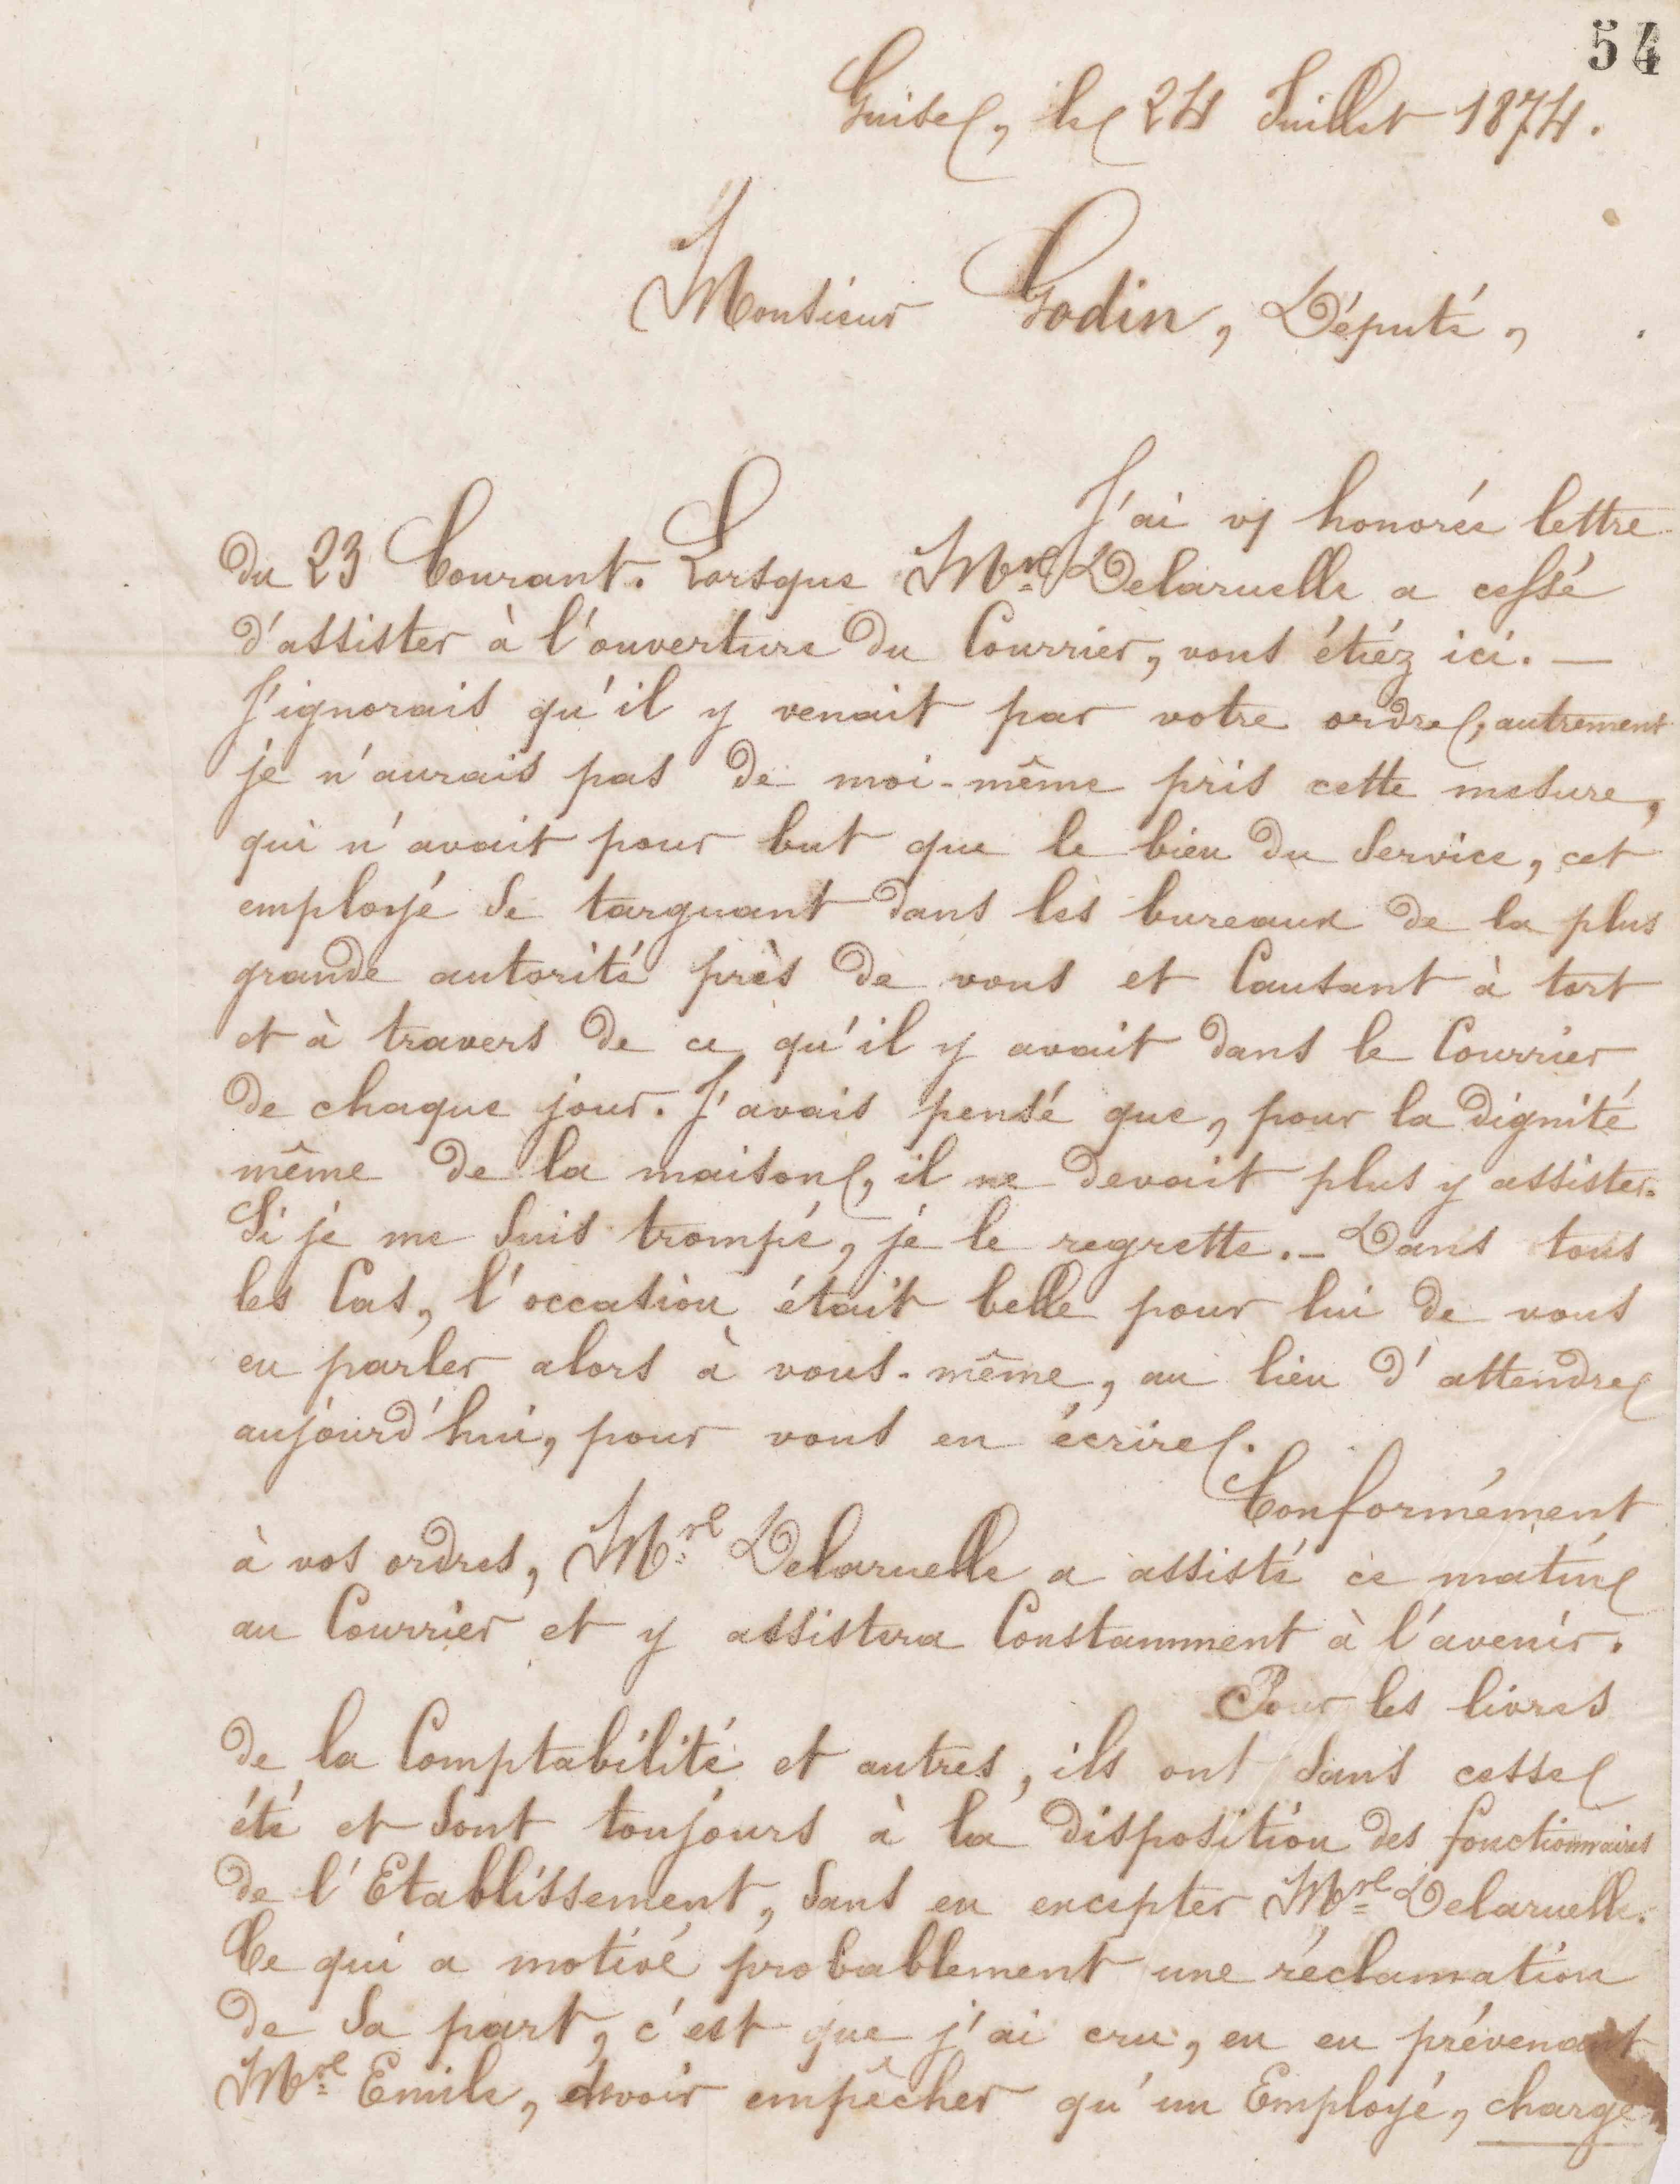 54
Guise, le 24 Juillet 1874.
Monsieur Godin, Député,
J'ai vu honorée lettre
du 23 Courant. Lorsque Mr Delaruelle a cessé
d'assister à l'ouverture du Courrier, vous étiez ici. —
J'ignorais qu'il y venait par votre ordre, autrement
je n'aurais pas de moi-même pris cette mesure,
qui n'avait pour but que le bien du Service, cet
employé se targuant dans les bureaux de la plus
grande autorité près de vous et Causant à tort
et à travers de ce qu'il y avait dans le Courrier
de chaque jour. J'avais pensé que, pour la dignité
même de la maison, il ne devait plus y assister.
Si je me suis trompé, je le regrette. – Dans tous
les Cas, l'occasion était belle pour lui de vous
en parler alors à vous-même, au lieu d'attendre
aujourd'hui, pour vous en écrire.
Conformément
à vos ordres, Mr Delaruelle a assisté ce matin
au Courrier et y assistera Constamment à l'avenir.
Pour les livres
de la Comptabilité et autres, ils ont sans cesse
été et sont toujours à la disposition des fonctionnaires
de l'Etablissement, sans en excepter Mr Delaruelle.
Ce qui a motivé probablement une réclamation
de sa part, c'est que j'ai cru, en en prévenant
Mr Emile, devoir empêcher qu'un Employé, chargé